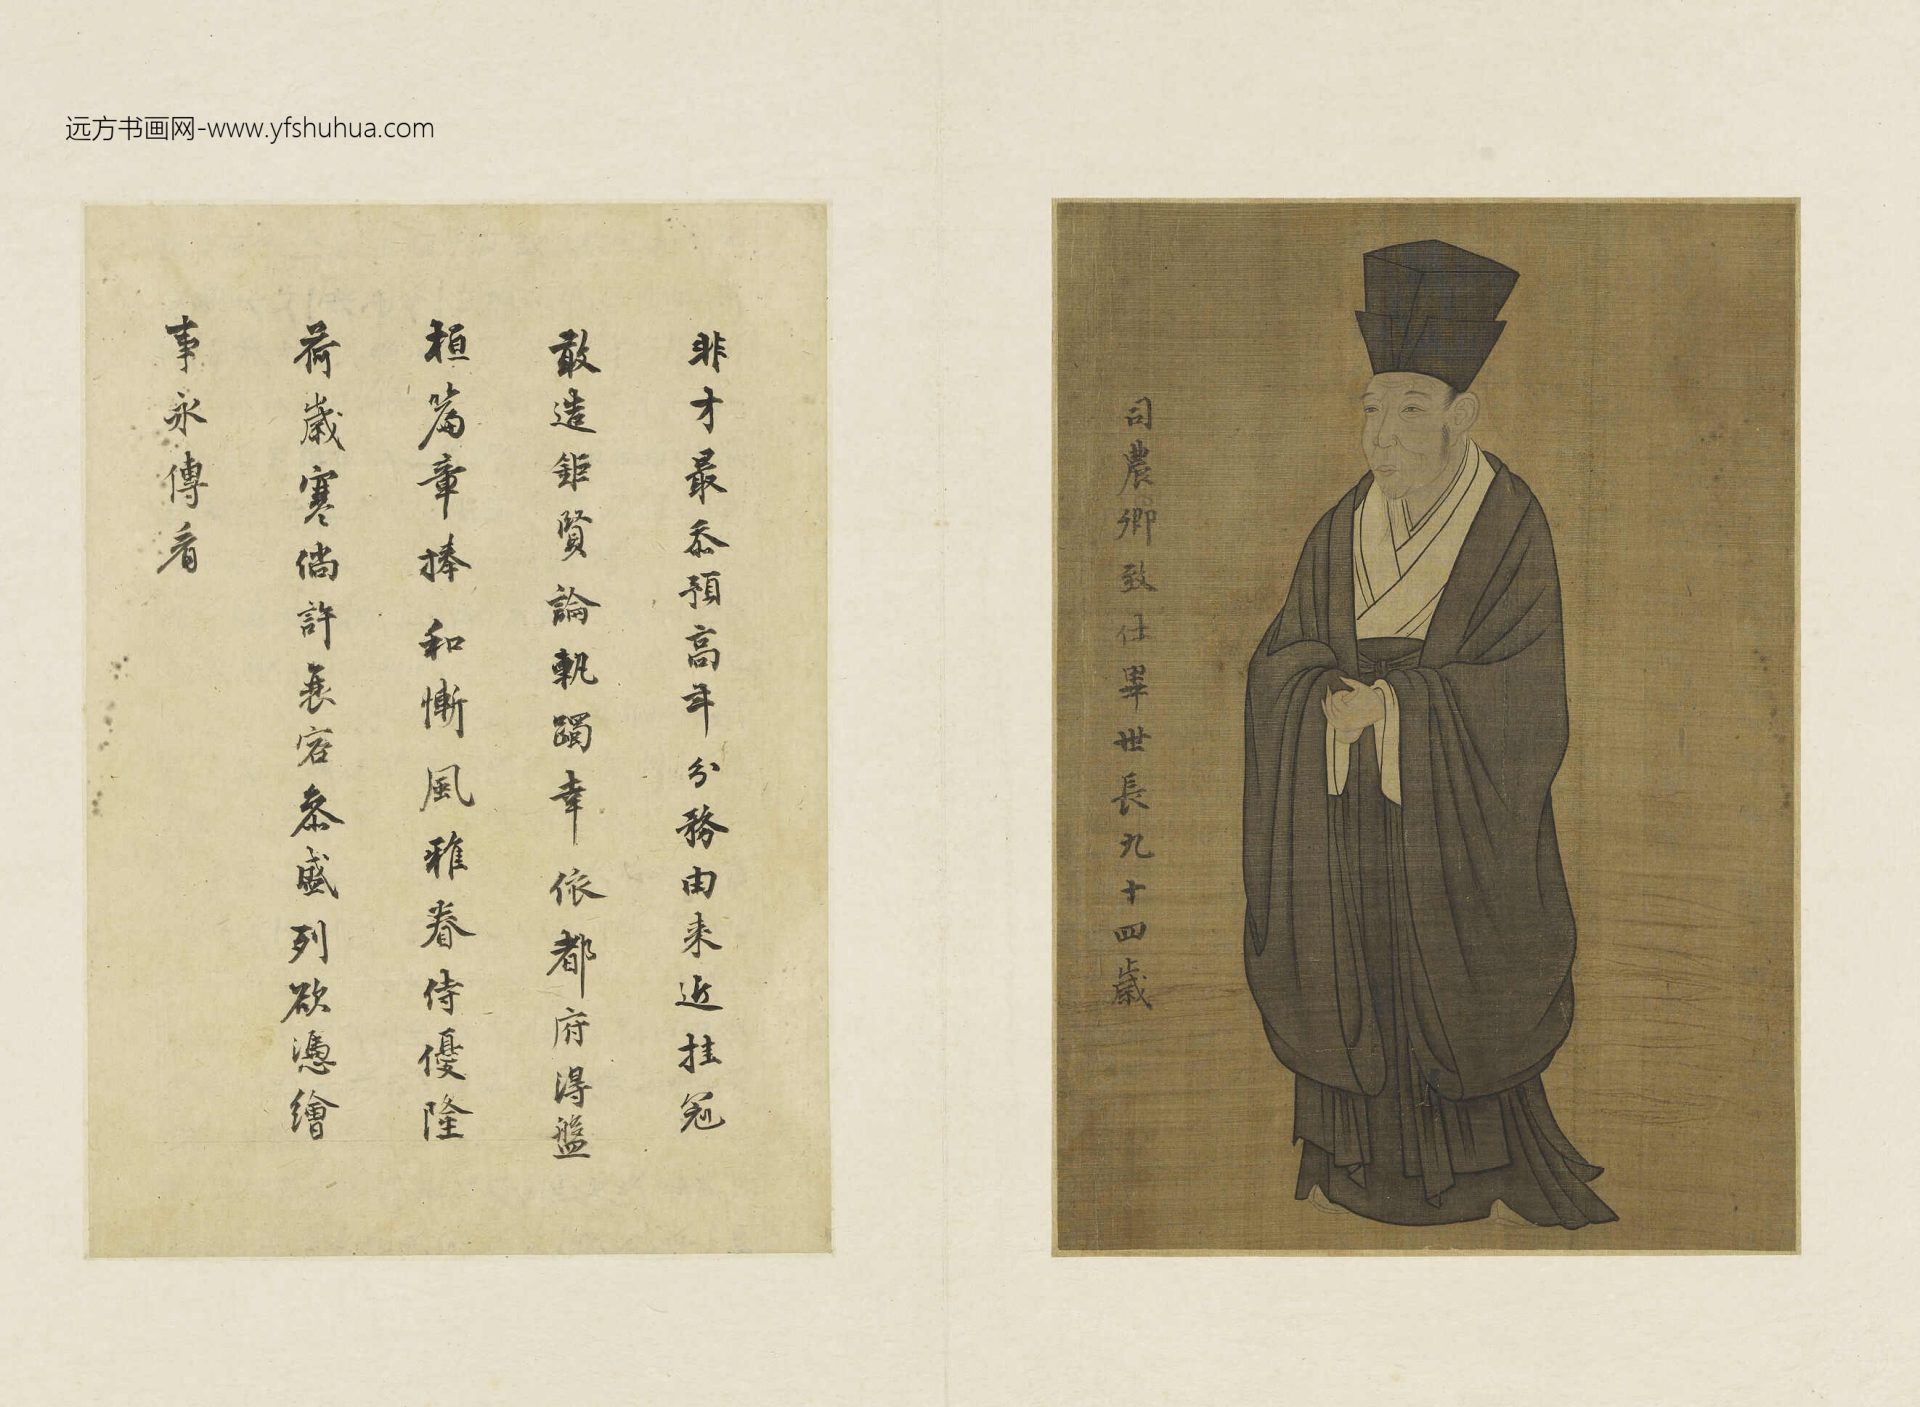 远方书画网-www.yfshuhua.com
司農卿致仕畢世長九十四歲
非才最忝預高年分務由来近挂冠
敢造鉅賢論軌躅幸依都府得盤
桓篇章捧和慚風雅眷待優隆
荷歲寒倘許衰容參盛列欲憑繪
事永傳看